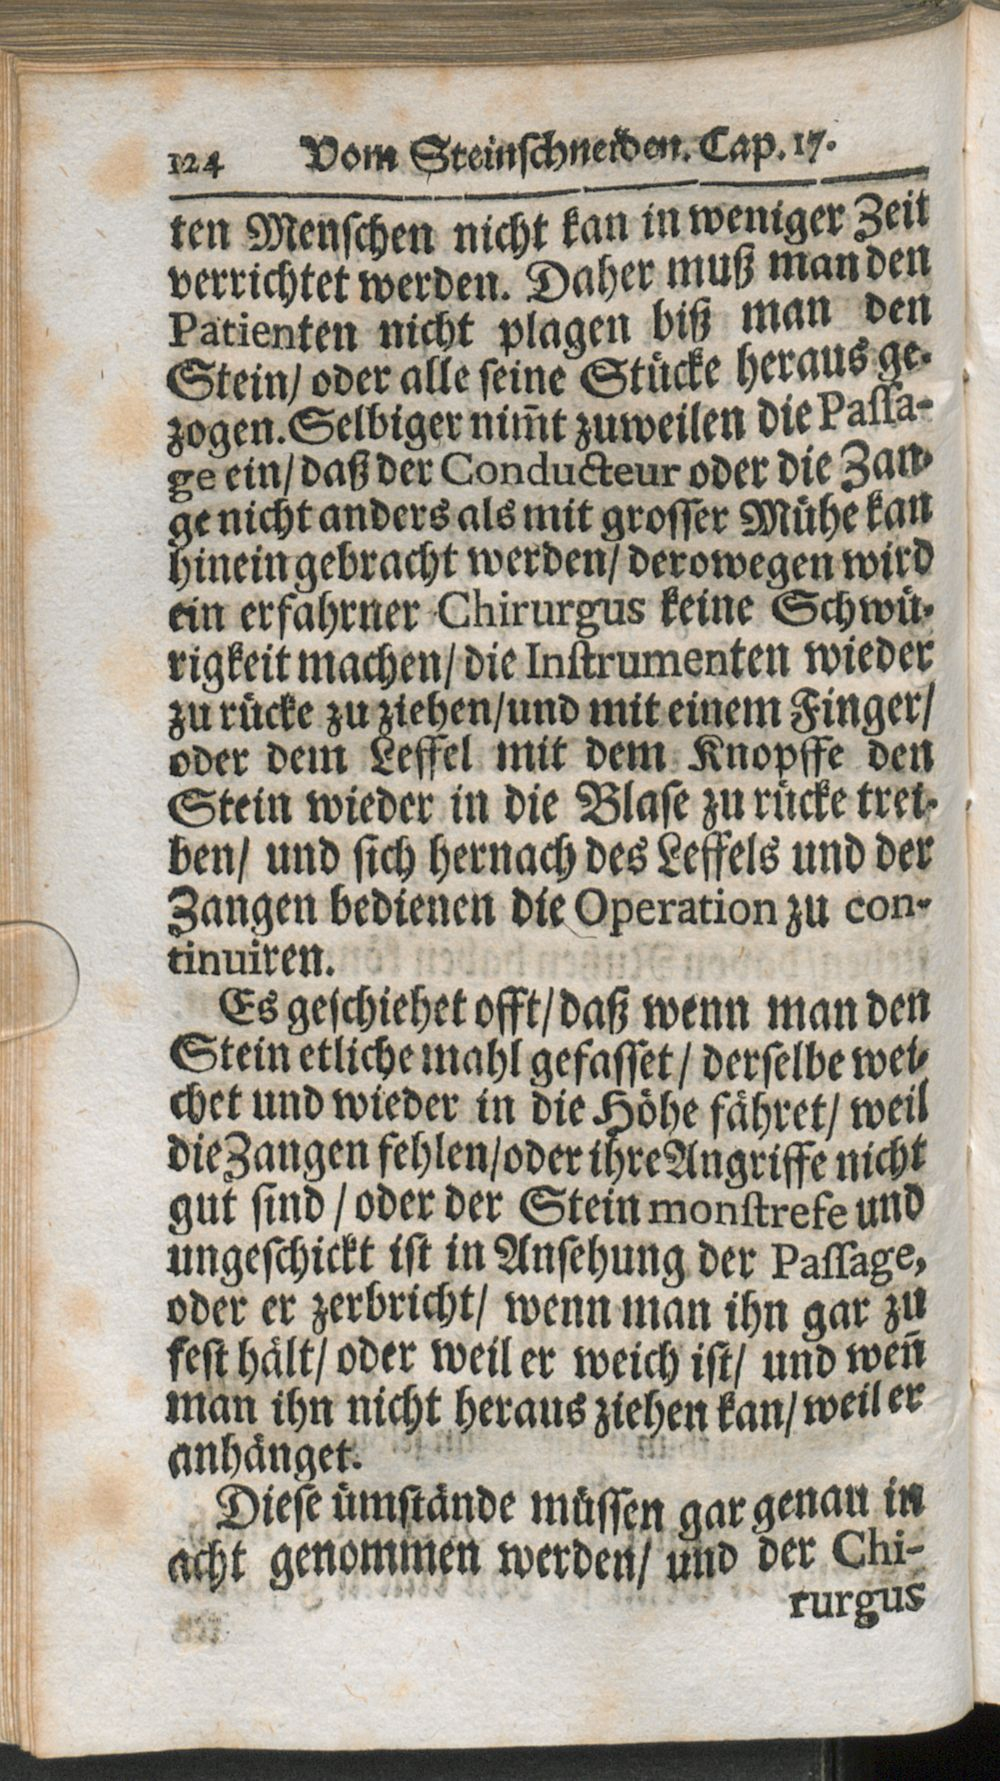 124 Vom Steinschneiden. Cap. 17.
ten Menschen nicht kan in weniger Zeit
verrichtet werden. Daher muß man den
Patienten nicht plagen biß man den
Stein/ oder alle seine Stücke heraus ge-
zogen. Selbiger nim̄t zuweilen die Passa-
ge ein/ daß der Conducteur oder die Zan-
ge nicht anders als mit grosser Mühe kan
hinein gebracht werden/ derowegen wird
ein erfahrner Chirurgus keine Schwü-
rigkeit machen/ die Instrumenten wieder
zu rücke zu ziehen/ und mit einem Finger/
oder dem Leffel mit dem Knopffe den
Stein wieder in die Blase zu rücke trei-
ben/ und sich hernach des Leffels und der
Zangen bedienen die Operation zu con-
tinuiren.
Es geschiehet offt/ daß wenn man den
Stein etliche mahl gefasset/ derselbe wei-
chet und wieder in die Höhe fähret/ weil
die Zangen fehlen/ oder ihre Angriffe nicht
gut sind/ oder der Stein monstrese und
ungeschickt ist in Ansehung der Passage,
oder er zerbricht/ wenn man ihn gar zu
fest hält/ oder weil er weich ist/ und weñ
man ihn nicht heraus ziehen kan/ weil er
anhänget.
Diese ümstände müssen gar genau in
acht genommen werden/ und der Chi-
rurgus